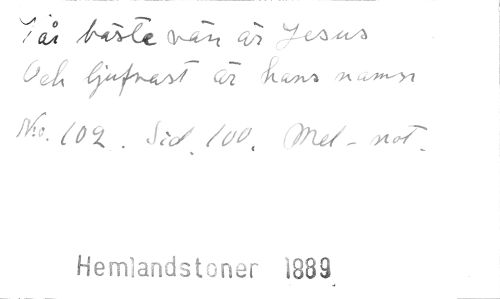 Vår bästa vän är Jesus
Och ljufvast är hans namn
No. 102. Sid. 100. Mel-not.
Hemlandstoner 1889